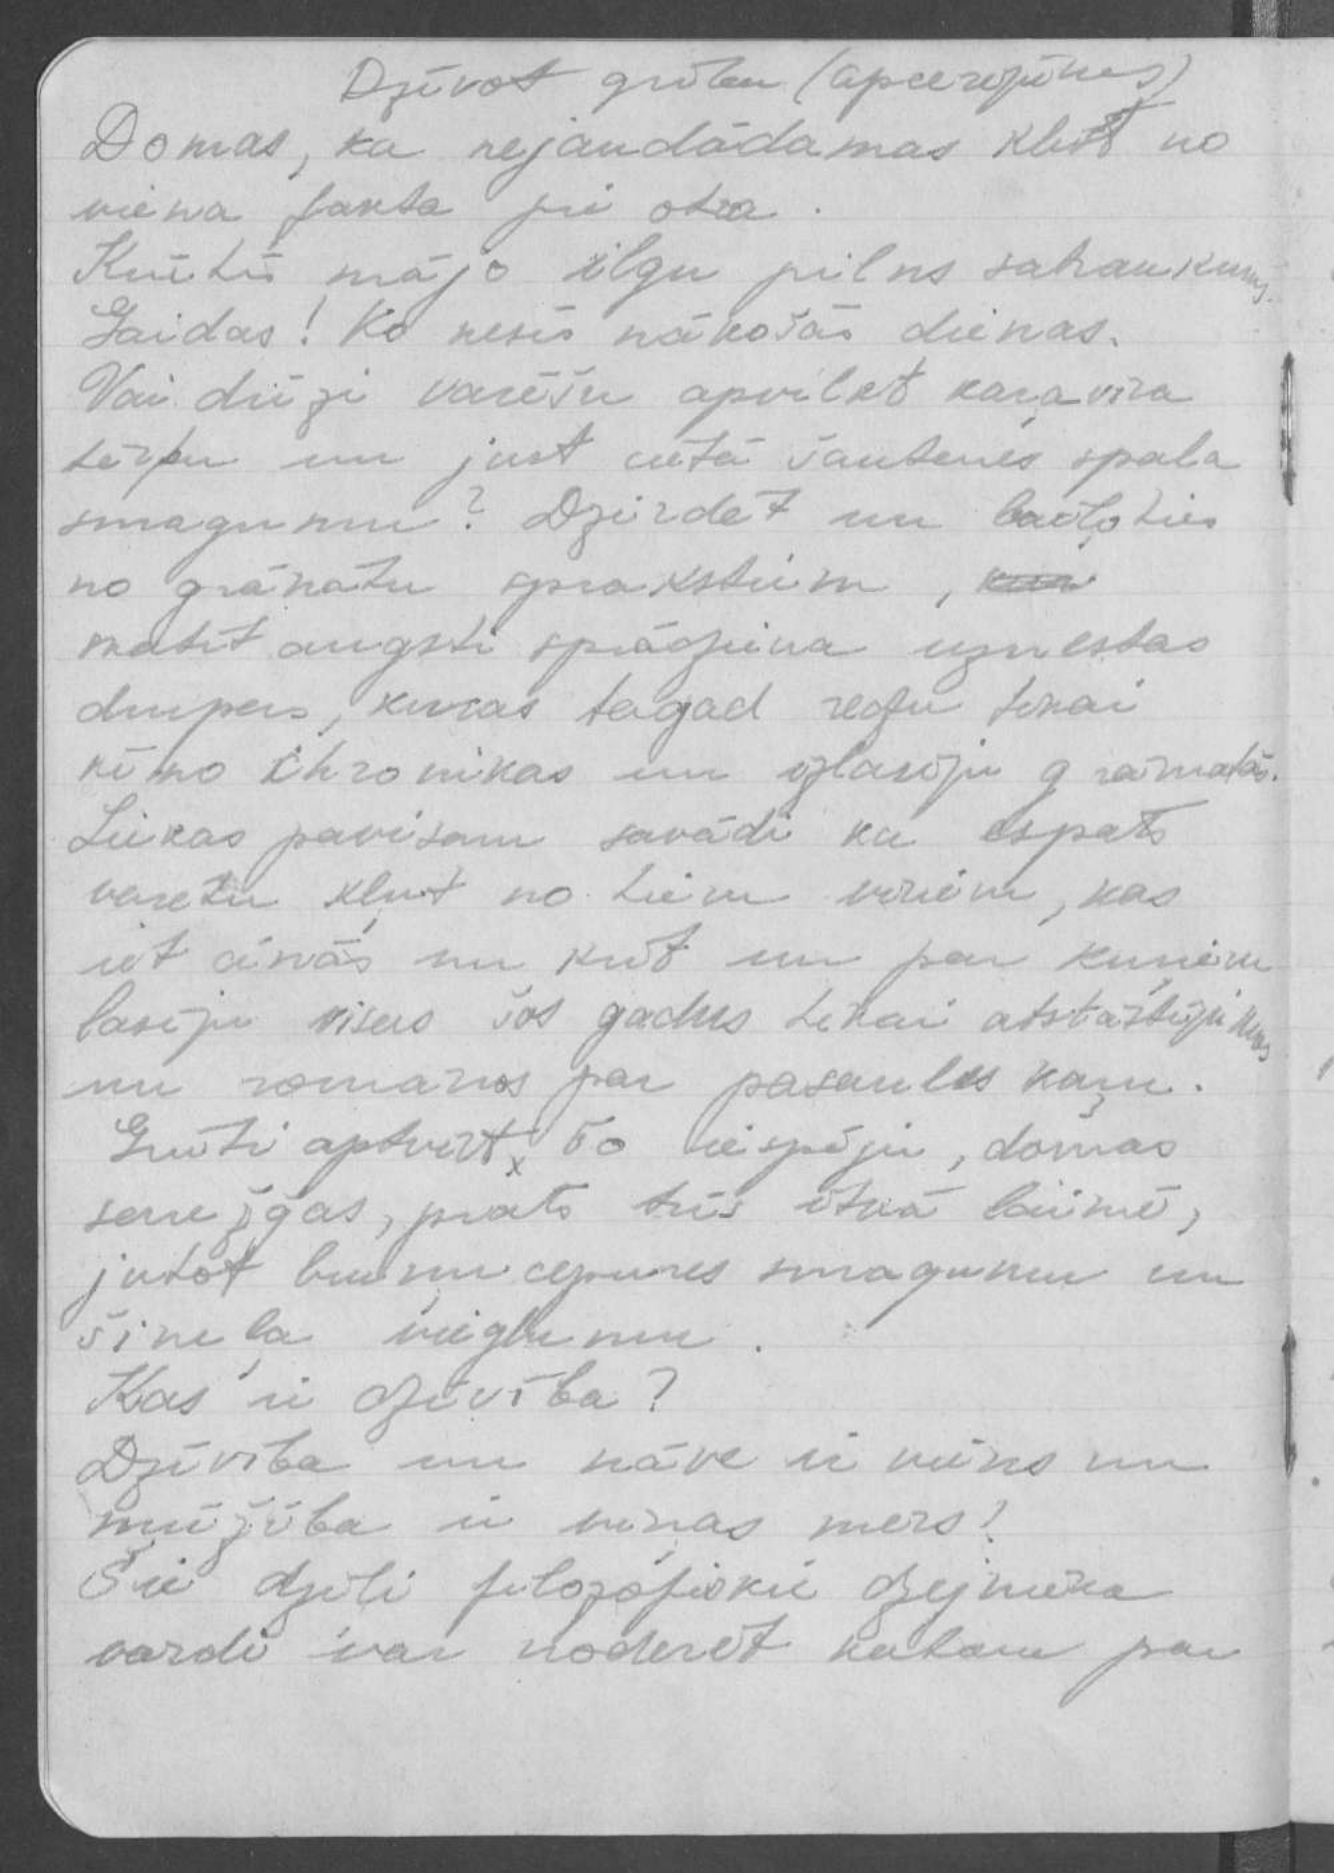 Dzīvot gribu (apcerējums)
Domas, ka nejaudādamas klīst no
viena fakta pi otra.
Krūtīs mājo ilgu pilns satraukums.
Gaidas! Ko nesīs nākošās dienas.
Vai drīzi varēšu apvilkt kaŗavīra
tērpu un just cietā šautenes spala
smagumu? Dzirdēt un baiļoties
no granātu sprakstiem,
matīt augsti sprādziena uznestas
drupas, kuras tagad redzu tikai
kīno chronikas un izlasīju grāmatās.
Liekas pavisam savādi ka espats
varētu kļut no tiem vīriem, kas
iet cīņās un krīt un par kuŗiem
lasīju visus šos gadus tikai atstāstījumus
un romanos par pasaules kaŗu.
Grūti aptvert šo iespēju, domas
samežģas, prāts trīs itkā laimē,
jutot bruņu cepures smagumu un
šineļa vieglumu.
Kas ir dzīvība?
Dzīvība un nāve ir viens un
mūžība ir viņas mers!
Šie dziļi filozofiskie dzejnieka
vardi var noderēt katram par